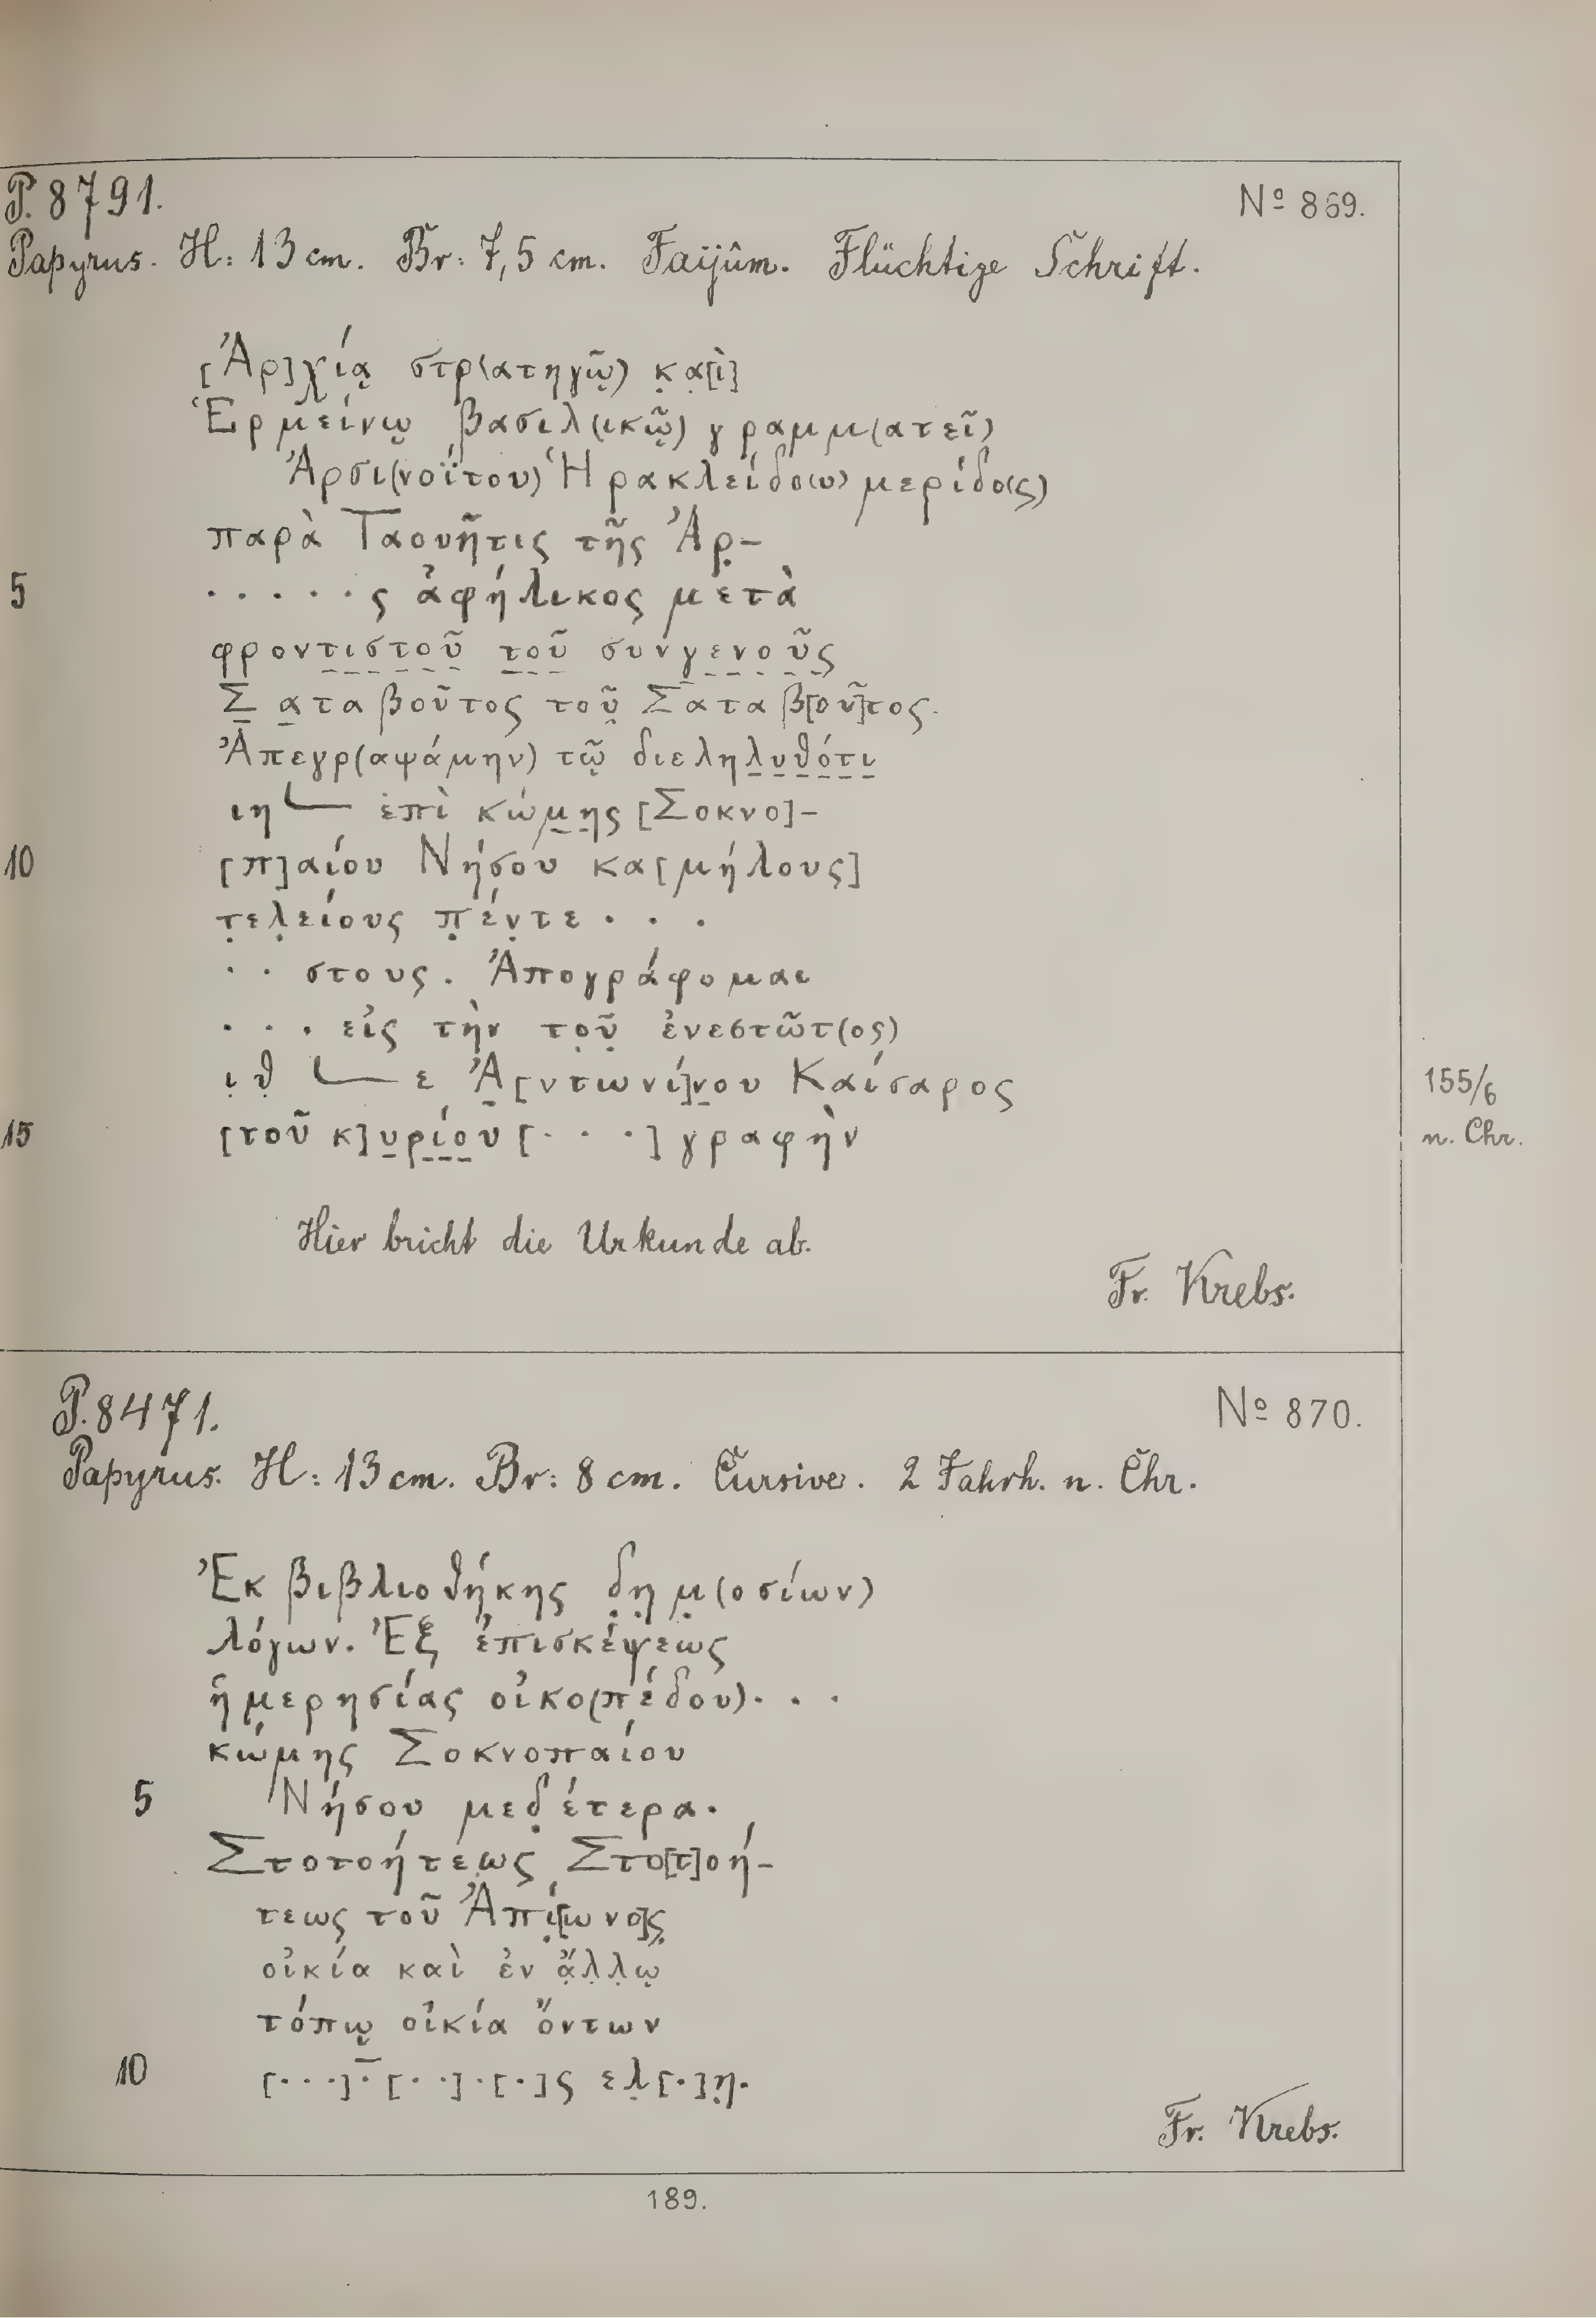 P. 8791.
Nº 869.
Papyrus. H: 13 cm. Br: 7,5 cm. Faijûm. Flüchtige Schrift.
[Ἀρ]χίᾳ στρ(ατηγῷ) κ̣α̣[ὶ]
Ἑρμείνῳ βασιλ(ικῷ) γραμμ(ατεῖ)
Ἀρσι(νοΐτου) Ἡρακλείδο(υ) μερίδο(ς)
παρὰ Ταουῆτις τῆς Ἀρ̣-
5 · · · · · ς ἀφήλικος μετὰ
φροντ̣ι̣σ̣τ̣ο̣ῦ̣ τ̣ο̣ῦ̣ συνγ̣ε̣ν̣ο̣ῦ̣ς̣
Σ̣α̣ταβοῦτος τοῦ̣ Σαταβ[οῦ]τος.
Ἀπεγρ(αψάμην) τῷ διεληλ̣υ̣θ̣ό̣τ̣ι̣
ιη ⌊— ἐπὶ κώμ̣η̣ς [Σοκνο]-
10 [π]αίου Νήσου κα[μήλους]
τ̣ελ̣είους π̣έν̣τε · · ·
· · στους. Ἀπογράφομαι
· · · εἰς τὴν το̣ῦ̣ ἐνεστῶτ(ος)
ι̣θ̣ ⌊— ε Ἀ̣[ντωνί]ν̣ου Καίσαρος
155/6
15 [τοῦ κ]υ̣ρ̣ί̣ο̣υ [· · ·] γραφὴν
n. Chr.
Hier bricht die Urkunde ab.
Fr. Krebs.
P. 8471.
Nº 870.
Papyrus. H: 13 cm. Br: 8 cm. Cursive. 2 Jahrh. n. Chr.
Ἐκ βιβλιοθήκης δ̣η̣μ̣(οσίων)
λόγων. Ἐξ ἐπισκέψεως
ἡμερησίας οἰκο(πέδου) · · ·
κώμης Σοκνοπαίου
5 Νήσου μεδ̣έτερα.
Στοτοήτεω̣ς Στο[τ]οή-
τεως τοῦ Ἀπί̣[ωνο]ς̣
οἰκία καὶ ἐν ἄ̣λ̣λ̣ῳ
τόπῳ οἰκία ὄντων
10 [· · ·] · [· ·] · [·]ς ελ̣[·]η̣.
Fr. Krebs.
189.